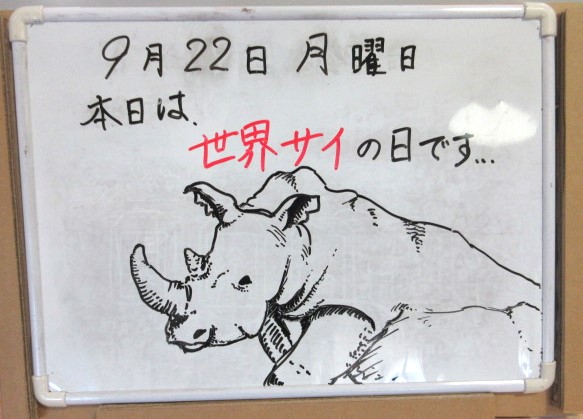 9月22日 月曜日
本日は、
世界サイの日です...